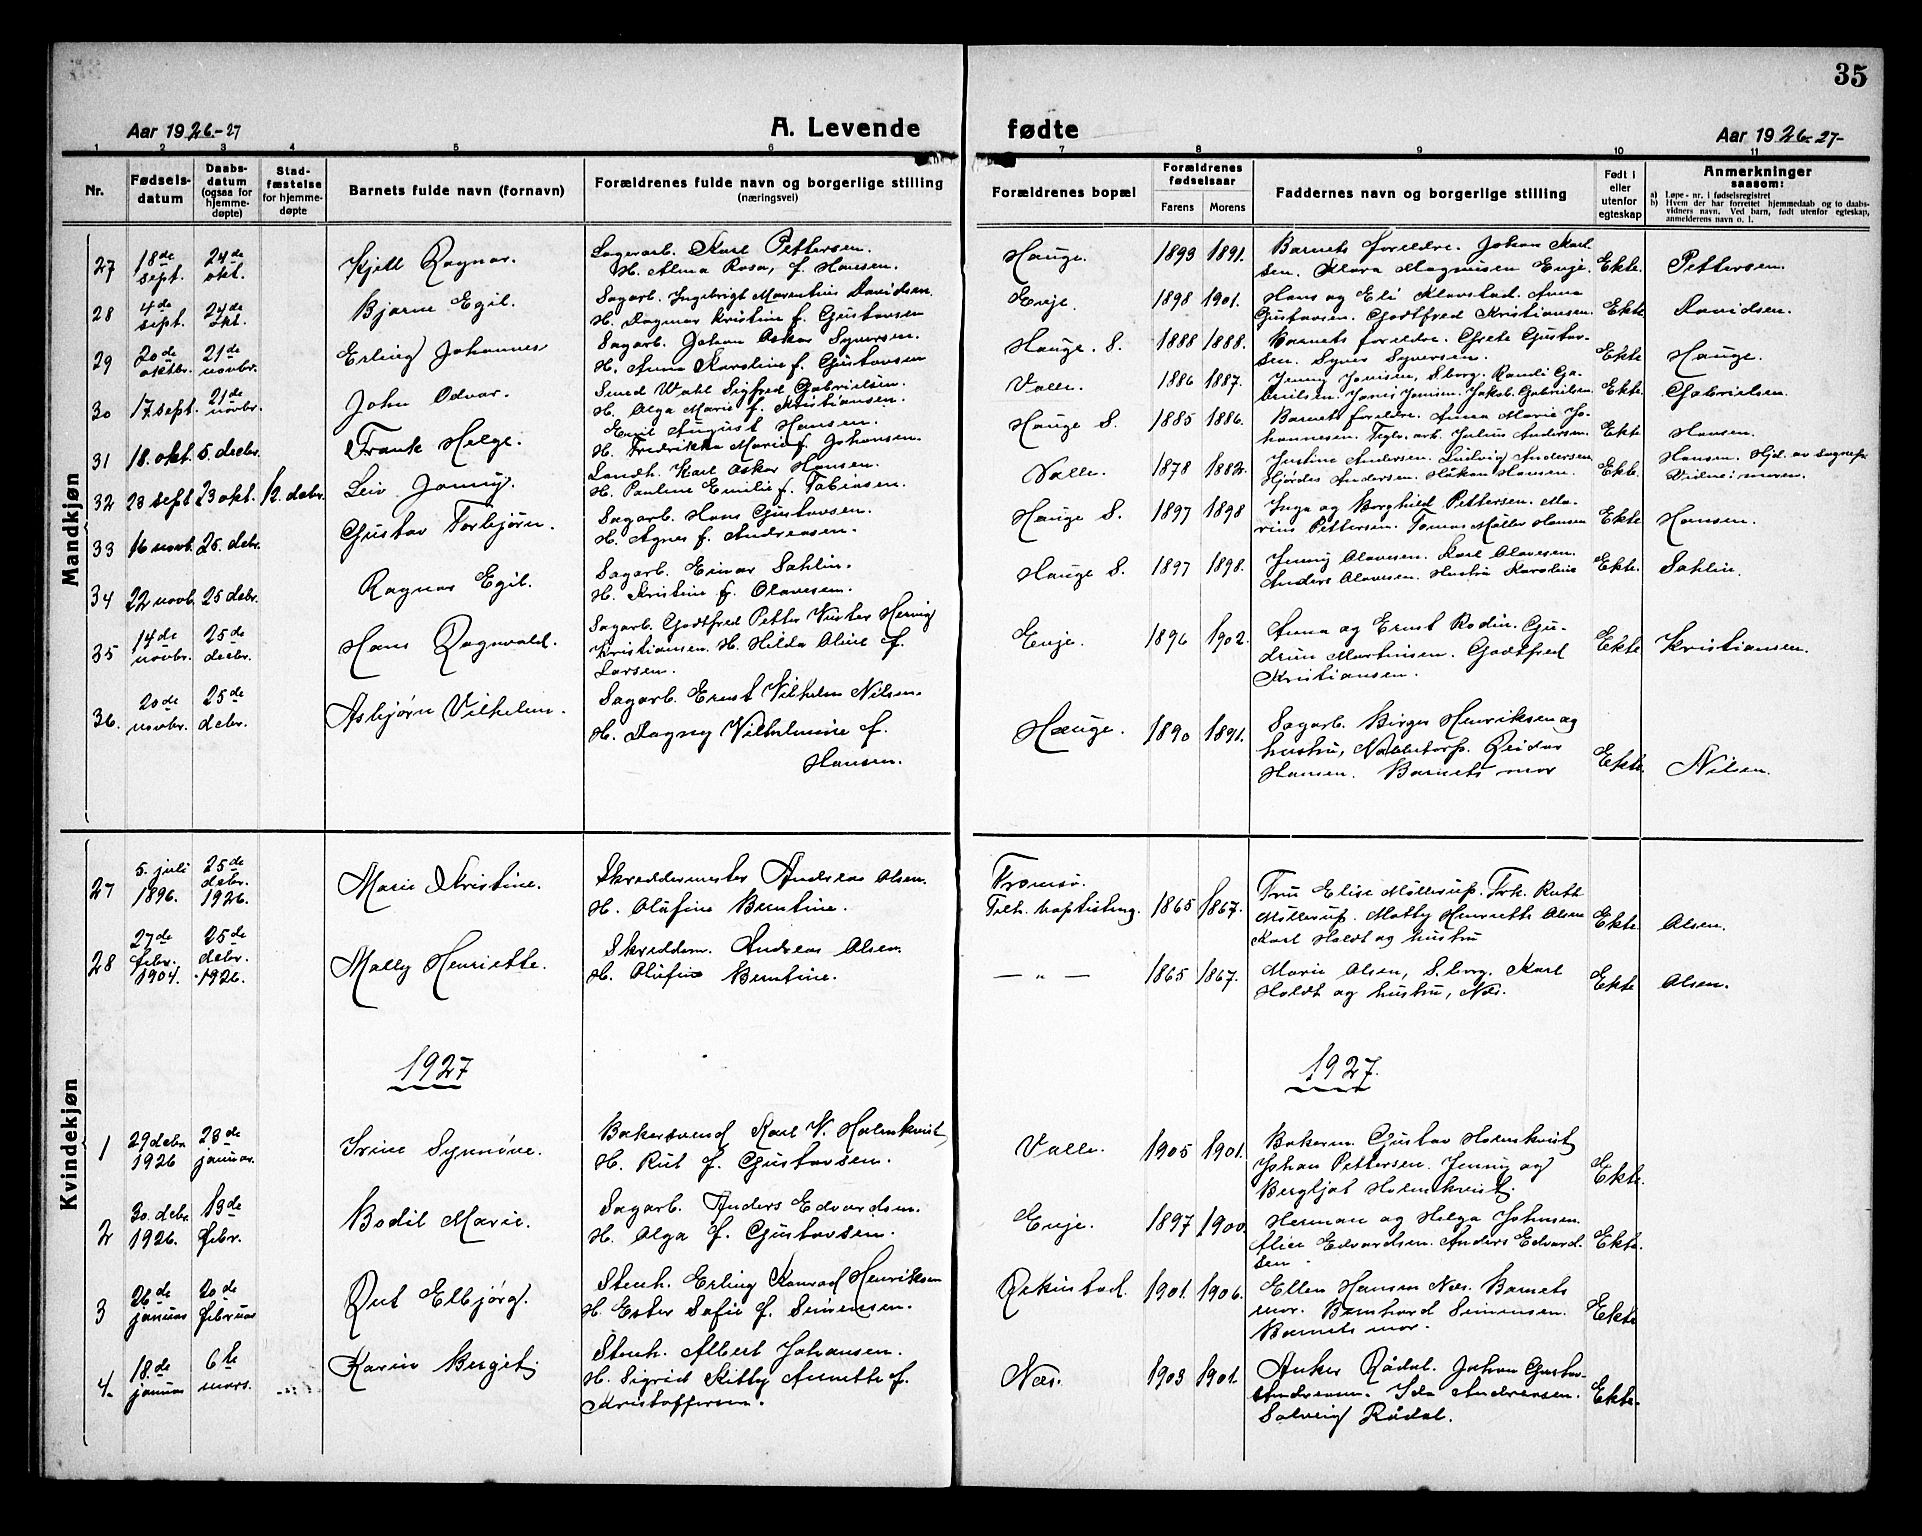 35
Aar 1926-27 A. Levende fødte Aar 1926-27-
1 2 3 4 5 6 7 8 9 10 11
Nr. Fødselsdatum Daabsdatum (ogsaa for hjemmedøpte) Stadfæstelse for hjemmedøpte Barnets fulde navn (fornavn) Forældrenes fulde navn og borgerlige stilling (næringsvei) Forældrenes bopæl Forældrenes fødselsaar Farens Morens Faddernes navn og borgerlige stilling Født i eller utenfor egteskap Anmerkninger saasom:
a) Løpe-nr. i fødselsregistret
b) Hvem der har forrettet hjemmedaab og to daabsvidners navn. Ved barn, født utenfor egteskap, anmelderens navn o. l.
Mandkjøn
27 18de sept. 24de okt. Kjell Ragnar. Lagerarb. Karl Pettersen. Hauge. 1893 1891. Barnets foreldre. Johan Karl
H. Alma Rosa, f. Hansen. sen. Klara Magnusen Enje. Ekte. Pettersen.
28 4de sept. 24de okt. Bjarne Egil. Sagarb. Ingebrigt Marentius Davidsen. Enje. 1898 1901. Hans og Eli Klavstad. Anna
H. Dagmar Kristine f. Gustavsen Gustavsen. Godtfred Kristiansen. Ekte Davidsen.
29 20de oktbr. 21de novbr. Erling Johannes Sagarb. Johan Oskar Syversen. Hauge. S. 1888 1888. Barnets foreldre. Grete Gustav-
H. Anna Karoline f. Gustavsen sen. Synes Syversen. Ekte Hauge.
30 17. sept. 21de novbr. John Odvar. Smed Wahl Sigfred Gabrielsen. Valle. 1886 1887. Jenny Jonisen, S.borg. Randi Ga-
H. Olga Marie f. Kristiansen. Jakob Gabrielsen Ekte. Gabrielsen.
31 18. okt. 5 decbr. Frank Helge. Emil August Hansen. Hauge S. 1885 1886. Barnets foreldre. Anna Marie Jo-
H. Fredrikka Marie f. Johansen. hannesen. Teglv. arb. Julius Andersen. Ekte Hansen.
32 23 sept 23 okt. 12. debr. Leiv Jonny. Landh. Karl Oskar Hansen. Valle. 1878 1882. Justine Andersen. Ludvig Andersen Hansen. Hjd. av sognepr
H. Pauline Emilie f. Tobiasen. Hjørdes Andersen. Håkon Hansen. Ekte. Vidne: moren.
33 16 novb. 25. debr. Gustav Torbjørn. Sagarb. Hans Gustavsen. Hauge S. 1897 1898 Inga og Borghild Pettersen. Ma-
H. Agnes f. Andreasen. rius Pettersen. Tomas Møller Hansen Ekte Hansen.
34 22 novb. 25 debr. Ragnar Egil. Sagarb. Einar Sahlin. Hauge S. 1897 1898. Jenny Olavesen. Karl Olavesen.
H. Kristine f. Olavesen. Anders Olavesen. Hustru Karoline Ekte. Sahlin.
35 14de novbr. 25de decbr. Hans Ragnvald. Sagarb. Godtfred Petter Henvig Enje. 1896 1902. Anna og Ernst Rodin. Gu-
Kristiansen. H. Hilda Oline f. drun Martinsen. Godtfred Ekte Kristiansen.
Larsen. Kristiansen.
36. 20de novbr. 25de debr. Asbjørn Vilhelm. Sagarb. Ernst Vilhelm Nilsen. Hauge. 1890 1891. Sagarb. Birger Henriksen og
H. Dagny Vilhelmine f. hustru, Valletorp. Reidar
Hansen. Hansen. Barnets mor Ekte. Nilsen.
Kvindekjøn
27 5. juli 1896. 25de debr. 1926. Marie Kristine. Skreddermester Andreas Olsen. Tromsø. 1865 1867. Fru Elise Møllerup. Frk. Ruth
H. Olufine Berntine. Tilh. baptisting. Møllerup. Molly Henriette Olsen Ekte Olsen.
Karl Holdt og hustru
28 27de febr. 1904. 25de debr. 1926. Molly Henriette. Skredderm. Andreas Olsen. — " — 1865 1867. Marie Olsen, S.borg. Karl
H. Olufine Berntine. Holdt og hustru, Næs. Ekte Olsen.
1927 1927.
1 29 debr. 1926 23de januar. Irine Synnøve. Bakersvend Karl V. Holmkvist Valle. 1905 1901. Bakerm. Gustav Holmkvist
H. Rut f. Gustavsen. Johan Pettersen. Jenny og Ekte.
Bergljot Holmkvist.
2 30. debr. 1926. 13de febr. Bodil Marie. Sagarb. Anders Edvardsen. Enje. 1897 1900 Herman og Helga Johnsen.
H. Olga f. Gustavsen. Alice Edvardsen. Anders Edvard- Ekte.
sen
3 26de januar 20de februar Rut Elbjørg. Stenh. Erling Konrad Henriksen Rekustad. 1901. 1906. Ellen Hansen Næs. Barnets
H. Ester Sofie f. Simensen. mor. Bernhard Simensen. Ekte
Barnets mor.
4. 18de januar 6te mars. Karin Bergit. Stenh. Albert Johansen. Næs. 1903 1901. Anker Rådal. Johan Gustav
H. Sigrid Kitty Annette f. Andersen. Ida Andersen. Ekte.
Kristoffersen. Solveig Rådal.